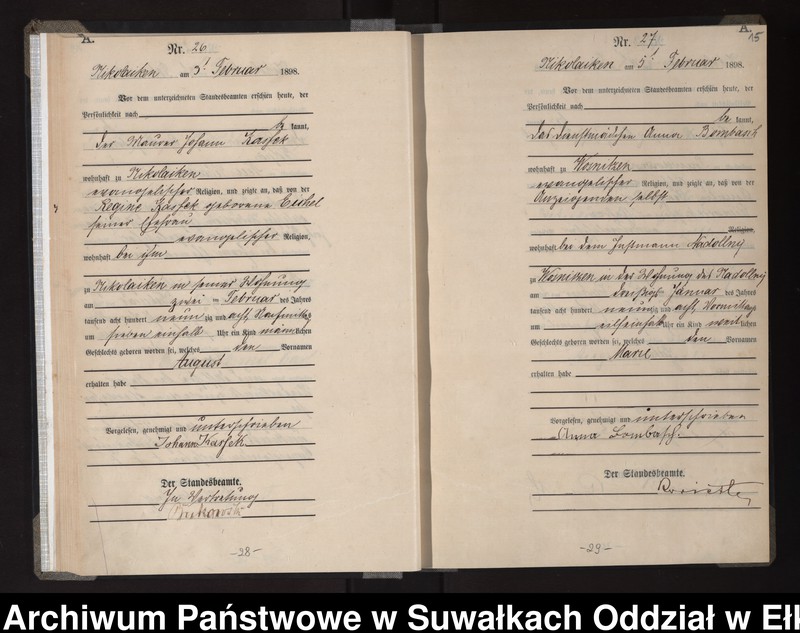 A.
Nr. 26
Nikolaiken am 5t Februar 1898.
Vor dem unterzeichneten Standesbeamten erschien heute, der
Persönlichkeit nach
be kannt,
der Maurer Johann
wohnhaft zu Nikolaiken
evangelischer Religion, und zeigte an, daß von der
Regine geborene
seiner Ehefrau
evangelischer Religion,
wohnhaft bei ihm
zu Nikolaiken in seiner Wohnung
am zwei ten Februar des Jahres
tausend acht hundert neun zig und acht, Nachmittags
um sieben einhalb Uhr ein Kind männlichen
Geschlechts geboren worden sei, welches den Vornamen
August
erhalten habe
Vorgelesen, genehmigt und unterschrieben
Johann
Der Standesbeamte.
In Vertretung
-28-
A.
15
Nr. 27
Nikolaiken am 5t Februar 1898.
Vor dem unterzeichneten Standesbeamten erschien heute, der
Persönlichkeit nach
be kannt,
das Dienstmädchen Anna Bombasch
wohnhaft zu Wosnitzen
evangelischer Religion, und zeigte an, daß von der
Anzeigenden selbst
Religion,
wohnhaft bei dem Instmann Nadollny
zu Wosnitzen in der Wohnung des Nadollny
am Januar des Jahres
tausend acht hundert neun zig und acht, Vormittags
um Uhr ein Kind weiblichen
Geschlechts geboren worden sei, welches den Vornamen
Marie
erhalten habe
Vorgelesen, genehmigt und unterschrieben
Anna Bombasch.
Der Standesbeamte.
-29-
Archiwum Państwowe w Suwałkach Oddział w Ełk